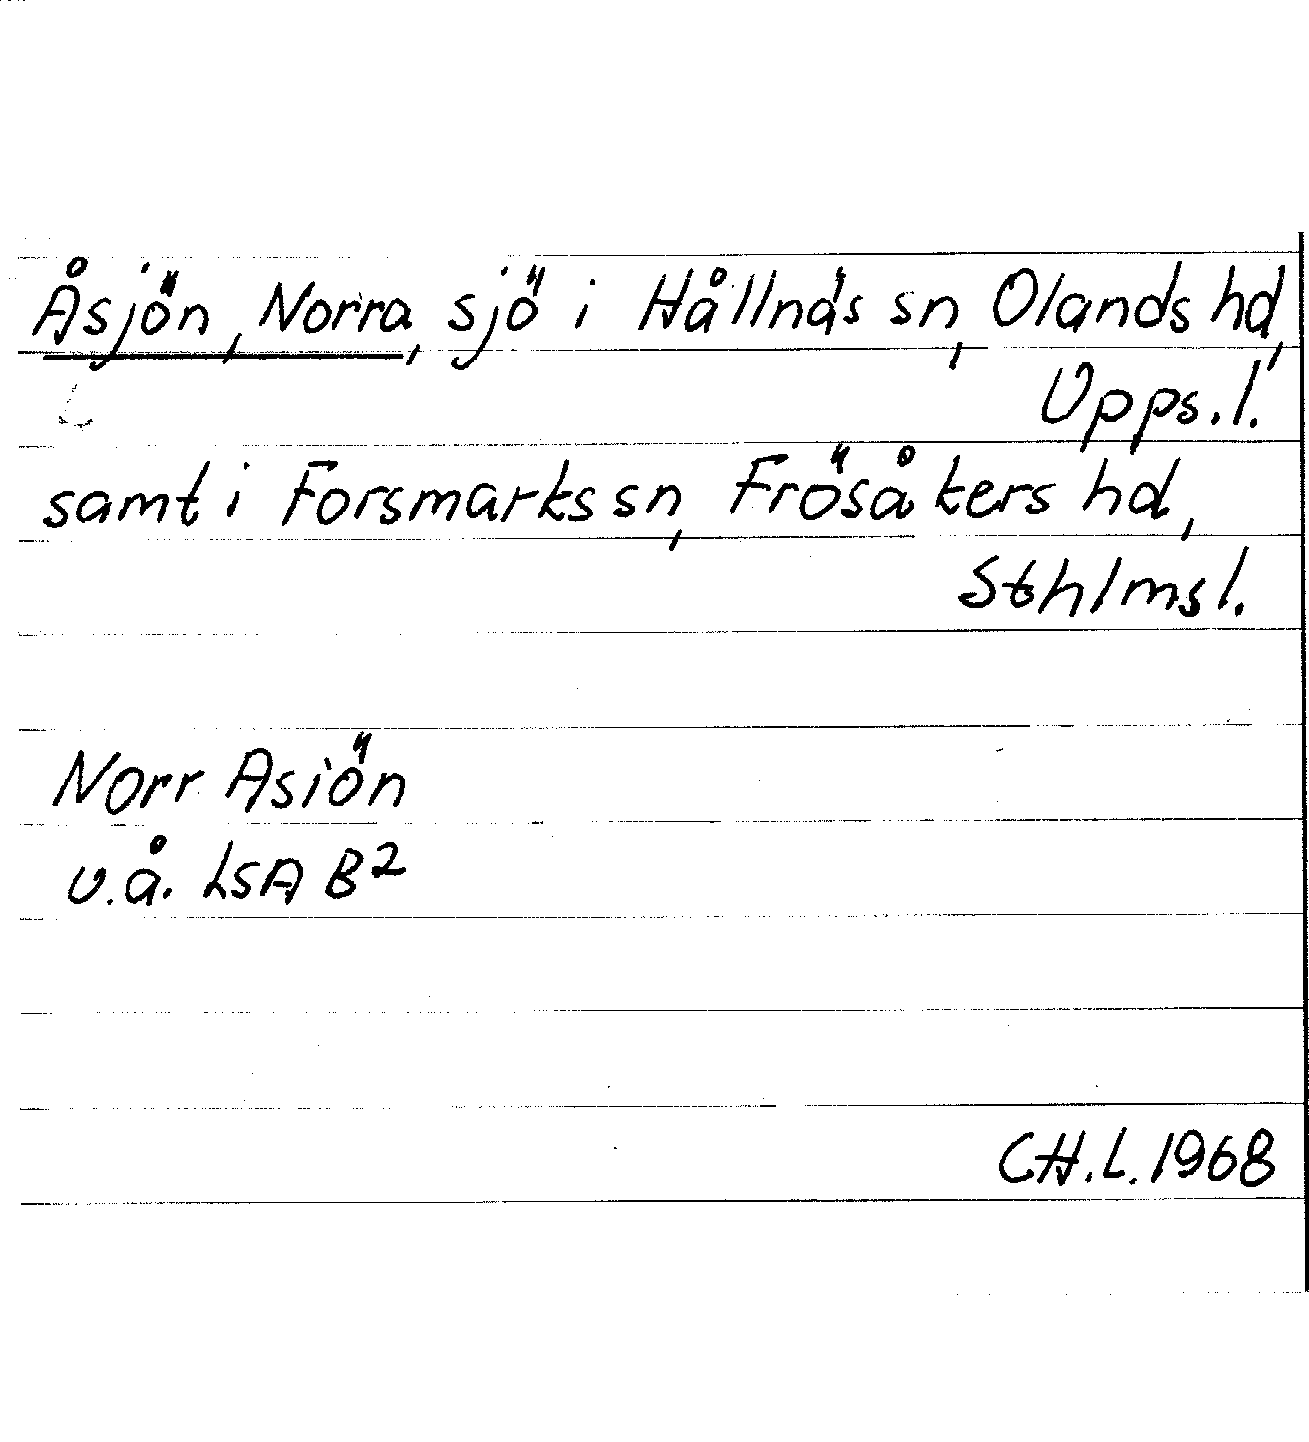 Åsjön, Norra, sjö i Hållnäs sn, Olands hd,
Upps.l.
samt i Forsmarks sn, Frösåkers hd,
Sthlms l.
Norr Asiön
u.å. LSA B²
CH.L. 1968